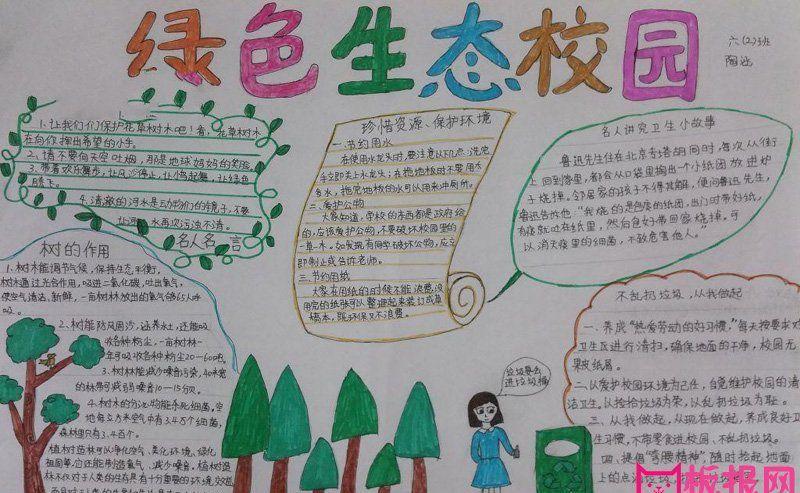 绿色生态校园
六(2)班
陶
1.让我们们保护花草树木吧!看,花草树木
在向你挥出希望的小手。
2、请不要向天空吐烟,那是地球妈妈的笑脸
3.带着欢乐舞步,让风沙停止,让鸟起舞,让绿色
4.清澈的河水是动物们的镜子,不要
让河水再次污浊不清。
名人名言
珍惜资源、保护环境
一.节约用水
在使用水龙头时,要注意以下几点:洗完
车立即关上水龙头;在拖地板时不要用太
多水,拖完地板的水可以用来冲厕所。
二.爱护公物
大家知道,学校的东西都是政府给
的,应该爱护公物,不要破坏校园里的
一草一木。如发现有同学破坏公物,应立
即制止或告诉老师。
三.节约用纸
大家在用纸的时候不能浪费,没
用完的纸张可以整理起来装订成草
稿本,既环保又不浪费。
名人讲究卫生小故事
鲁迅先生住在北京专塔胡同时,每次从街
上回到家里,都会从口袋里掏出一个小纸团放进炉
子烧掉。邻居家的孩子不得其解,便问鲁迅先生,
鲁迅告诉他:“我烧的是包痰的纸团,出门时带好纸,
有痰就吐在纸里,然后包好带回家烧掉。可
以消灭痰里的细菌,不致危害他人。”
树的作用
1.树木能调节气候,保持生态平衡,
树木通过光合作用,吸进二氧化碳,吐出氧气,
使空气清洁、新鲜,一亩树木放出的氧气够65人呼
吸。
2.树能防风固沙,涵养水土,还能吸
收各种粉尘,一亩树林一
年可吸收各种粉尘20—60吨
3.树林能减少噪音污染,40米宽
的林带可减弱噪音10—15分贝。
4.树木的分泌物能杀死细菌,空
地每立方米空气中有3.4万个细菌,
森林里只有3.4百个。
植树造林可以净化空气、美化环境、绿化
祖国等,它还能制造氧气、减少噪音,植树造
林不仅对于人类的生产有着十分重要的环境效益,
垃圾要丢
进垃圾桶
不乱扔垃圾,从我做起
一、养成“热爱劳动的好习惯”,每天按要求对
卫生区进行清扫,确保地面的干净,校园无
果皮纸屑。
二.以爱护校园环境为己任,自觉维护校园的清
洁卫生。以捡拾垃圾为荣,以乱扔垃圾为耻。
三、从我做起,从现在做起,养成良好卫
生习惯,不带零食进校园、不乱扔垃圾。
四、提倡“弯腰精神”,随时捡起地面
上的点滴垃圾
板报网